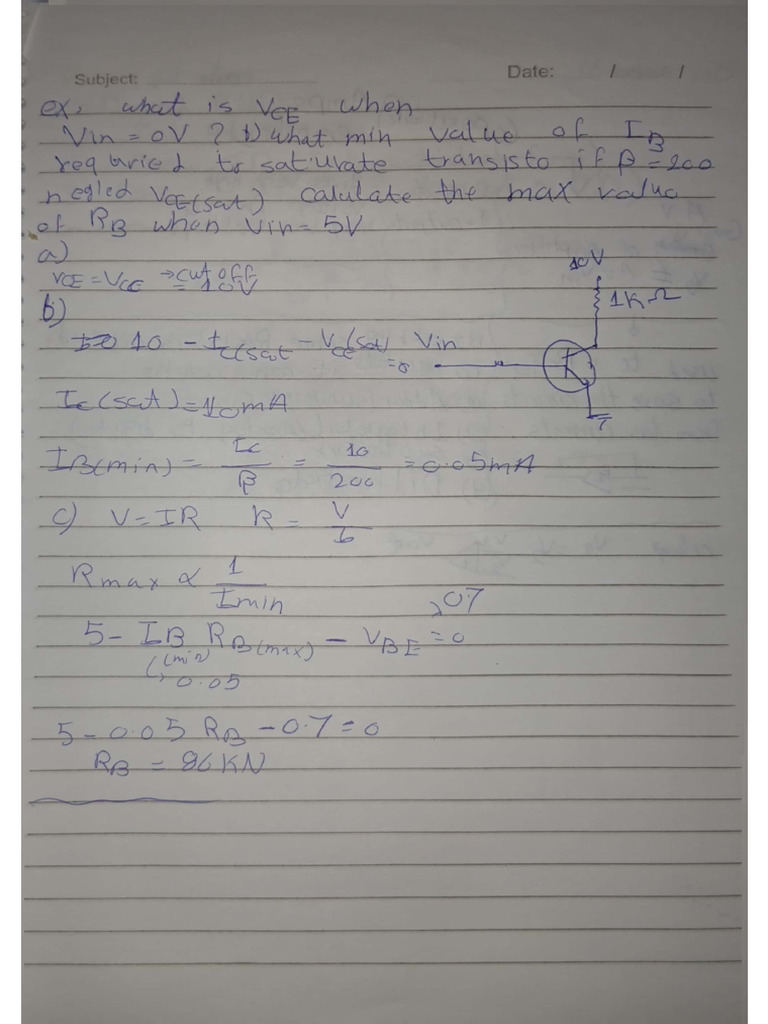 Subject: Date: / /
ex, what is VCE when
Vin = 0V ? b) what min value of IB
requried to saturate transisto if β = 200
negled VCE(sat) calulate the max value
of RB when Vin = 5V
a)
VCE = VCC → cut off
= 10V
10V
1KΩ
b)
10 - IC(sat - VCE(sat) = 0
Vin
Ic(sat) = 10mA
IB(min) = Ic/β = 10/200 = 0.05mA
c) V = IR R = V/I
Rmax ∝ 1/Imin
5 - IB(min) RB(max) - VBE = 0
0.7
0.05
5 - 0.05 RB - 0.7 = 0
RB = 86KN